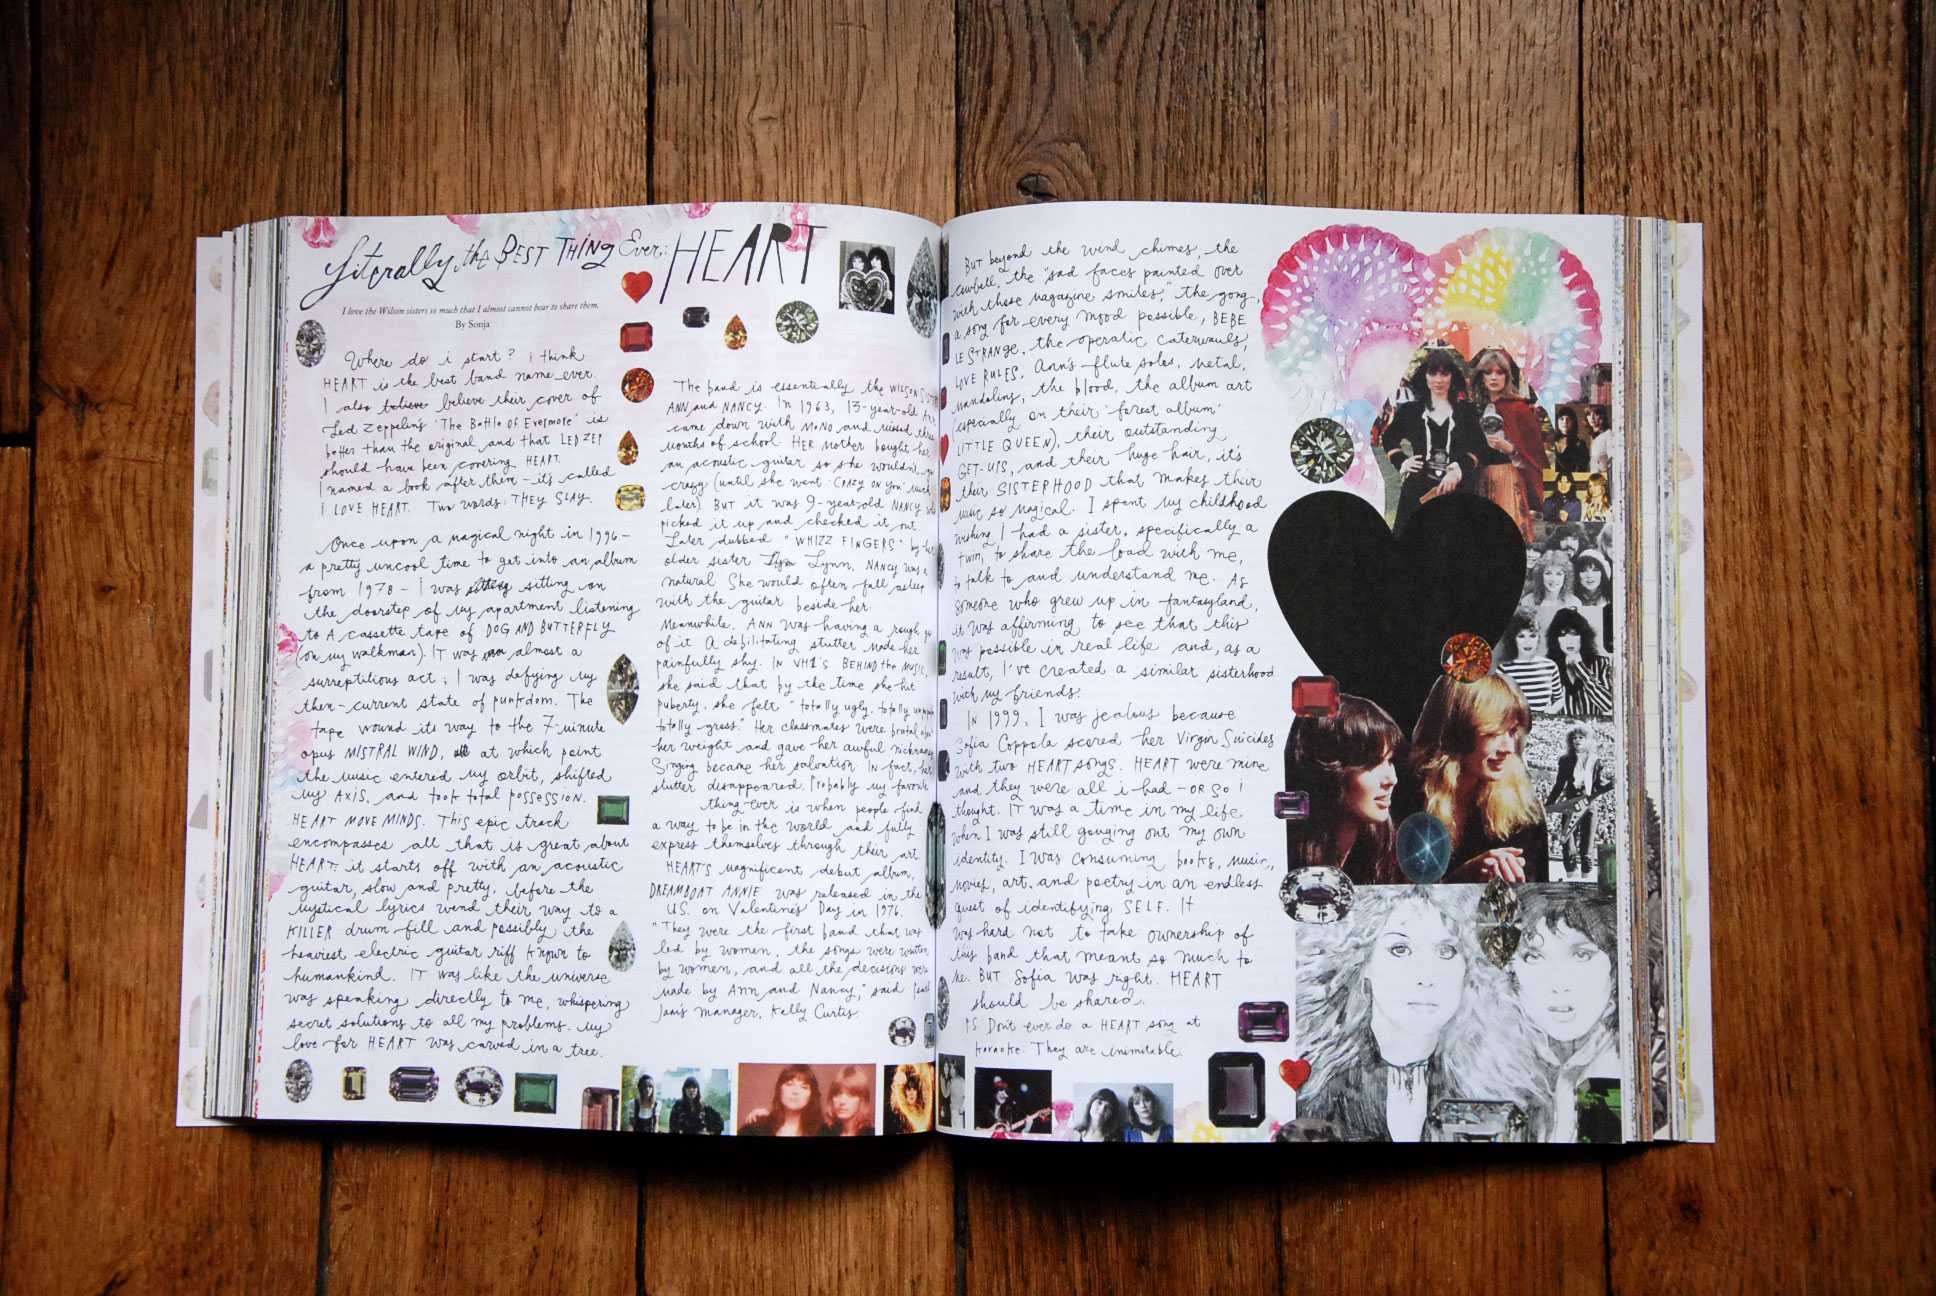 Literally the BEST THING Ever: HEART
I love the Wilson sisters so much that I almost cannot bear to share them.
By Sonja
Where do i start? i think
HEART is the best band name ever.
I also believe believe their cover of
Led Zeppelin's 'The Battle of Evermore' is
better than the original and that LED ZEP
should have been covering HEART.
I named a book after them - it's called
I LOVE HEART. Two words: THEY SLAY.
Once upon a magical night in 1996-
a pretty uncool time to get into an album
from 1978 - I was sitting on
the doorstep of my apartment listening
to A cassette tape of DOG AND BUTTERFLY
(on my walkman). IT was almost a
surreptitious act; I was defying my
then-current state of punkdom. The
tape wound its way to the 7-minute
opus MISTRAL WIND, at which point
the music entered my orbit, shifted
my AXIS, and took total possession.
HEART MOVE MINDS. This epic track
encompasses all that is great about
HEART: it starts off with an acoustic
guitar, slow and pretty, before the
mystical lyrics wend their way to a
KILLER drum fill and possibly the
heaviest electric guitar riff known to
humankind. IT was like the universe
was speaking directly to me, whispering
secret solutions to all my problems. My
love for HEART was carved in a tree.
The band is essentially the WILSON SISTERS
ANN and NANCY. In 1963, 13-year-old Ann
came down with MONO and missed three
months of school. HER mother bought her
an acoustic guitar so she wouldn't go
crazy (until she went 'CRAZY ON YOU' much
later). BUT it was 9-year-old NANCY who
picked it up and checked it out.
Later dubbed "WHIZZ FINGERS" by her
older sister Lynn, NANCY was a
natural. She would often fall asleep
with the guitar beside her.
Meanwhile, ANN was having a rough go
of it. A debilitating stutter made her
painfully shy. IN VH1'S BEHIND the MUSIC,
she said that by the time she hit
puberty, she felt "totally ugly, totally
totally gross." Her classmates were brutal about
her weight and gave her awful nicknames.
Singing became her salvation. IN fact, her
stutter disappeared. Probably my favorite
thing ever is when people find
a way to be in the world and fully
express themselves through their art.
HEART'S magnificent debut album,
DREAMBOAT ANNIE was released in the
U.S. on Valentine's Day in 1976.
"They were the first band that was
led by women, the songs were written
by women, and all the decisions were
made by Ann and Nancy," said
manager, Kelly Curtis.
BUT beyond the wind chimes, the
cowbell, the "sad faces painted over
with those magazine smiles," the gong,
a song for every mood possible, BEBE
LE STRANGE, the operatic caterwauls,
LOVE RULES, Ann's flute solos, metal,
mandolins, the blood, the album art
(especially on their 'forest album'
LITTLE QUEEN), their outstanding
GET-UPS, and their huge hair, it's
their SISTERHOOD that makes their
music so magical. I spent my childhood
wishing I had a sister, specifically a
twin, to share the load with me,
to talk to and understand me. As
someone who grew up in fantasyland,
it was affirming to see that this
was possible in real life and, as a
result, I've created a similar sisterhood
with my friends.
IN 1999, I was jealous because
Sofia Coppola scored her Virgin Suicides
with two HEART songs. HEART were mine
and they were all i had - OR SO I
thought. IT was a time in my life
when I was still gouging out my own
identity. I was consuming books, music,
movies, art, and poetry in an endless
quest of identifying SELF. It
was hard not to take ownership of
this band that meant so much to
me. BUT Sofia was right. HEART
should be shared.
PS Don't ever do a HEART song at
karaoke. They are inimitable.